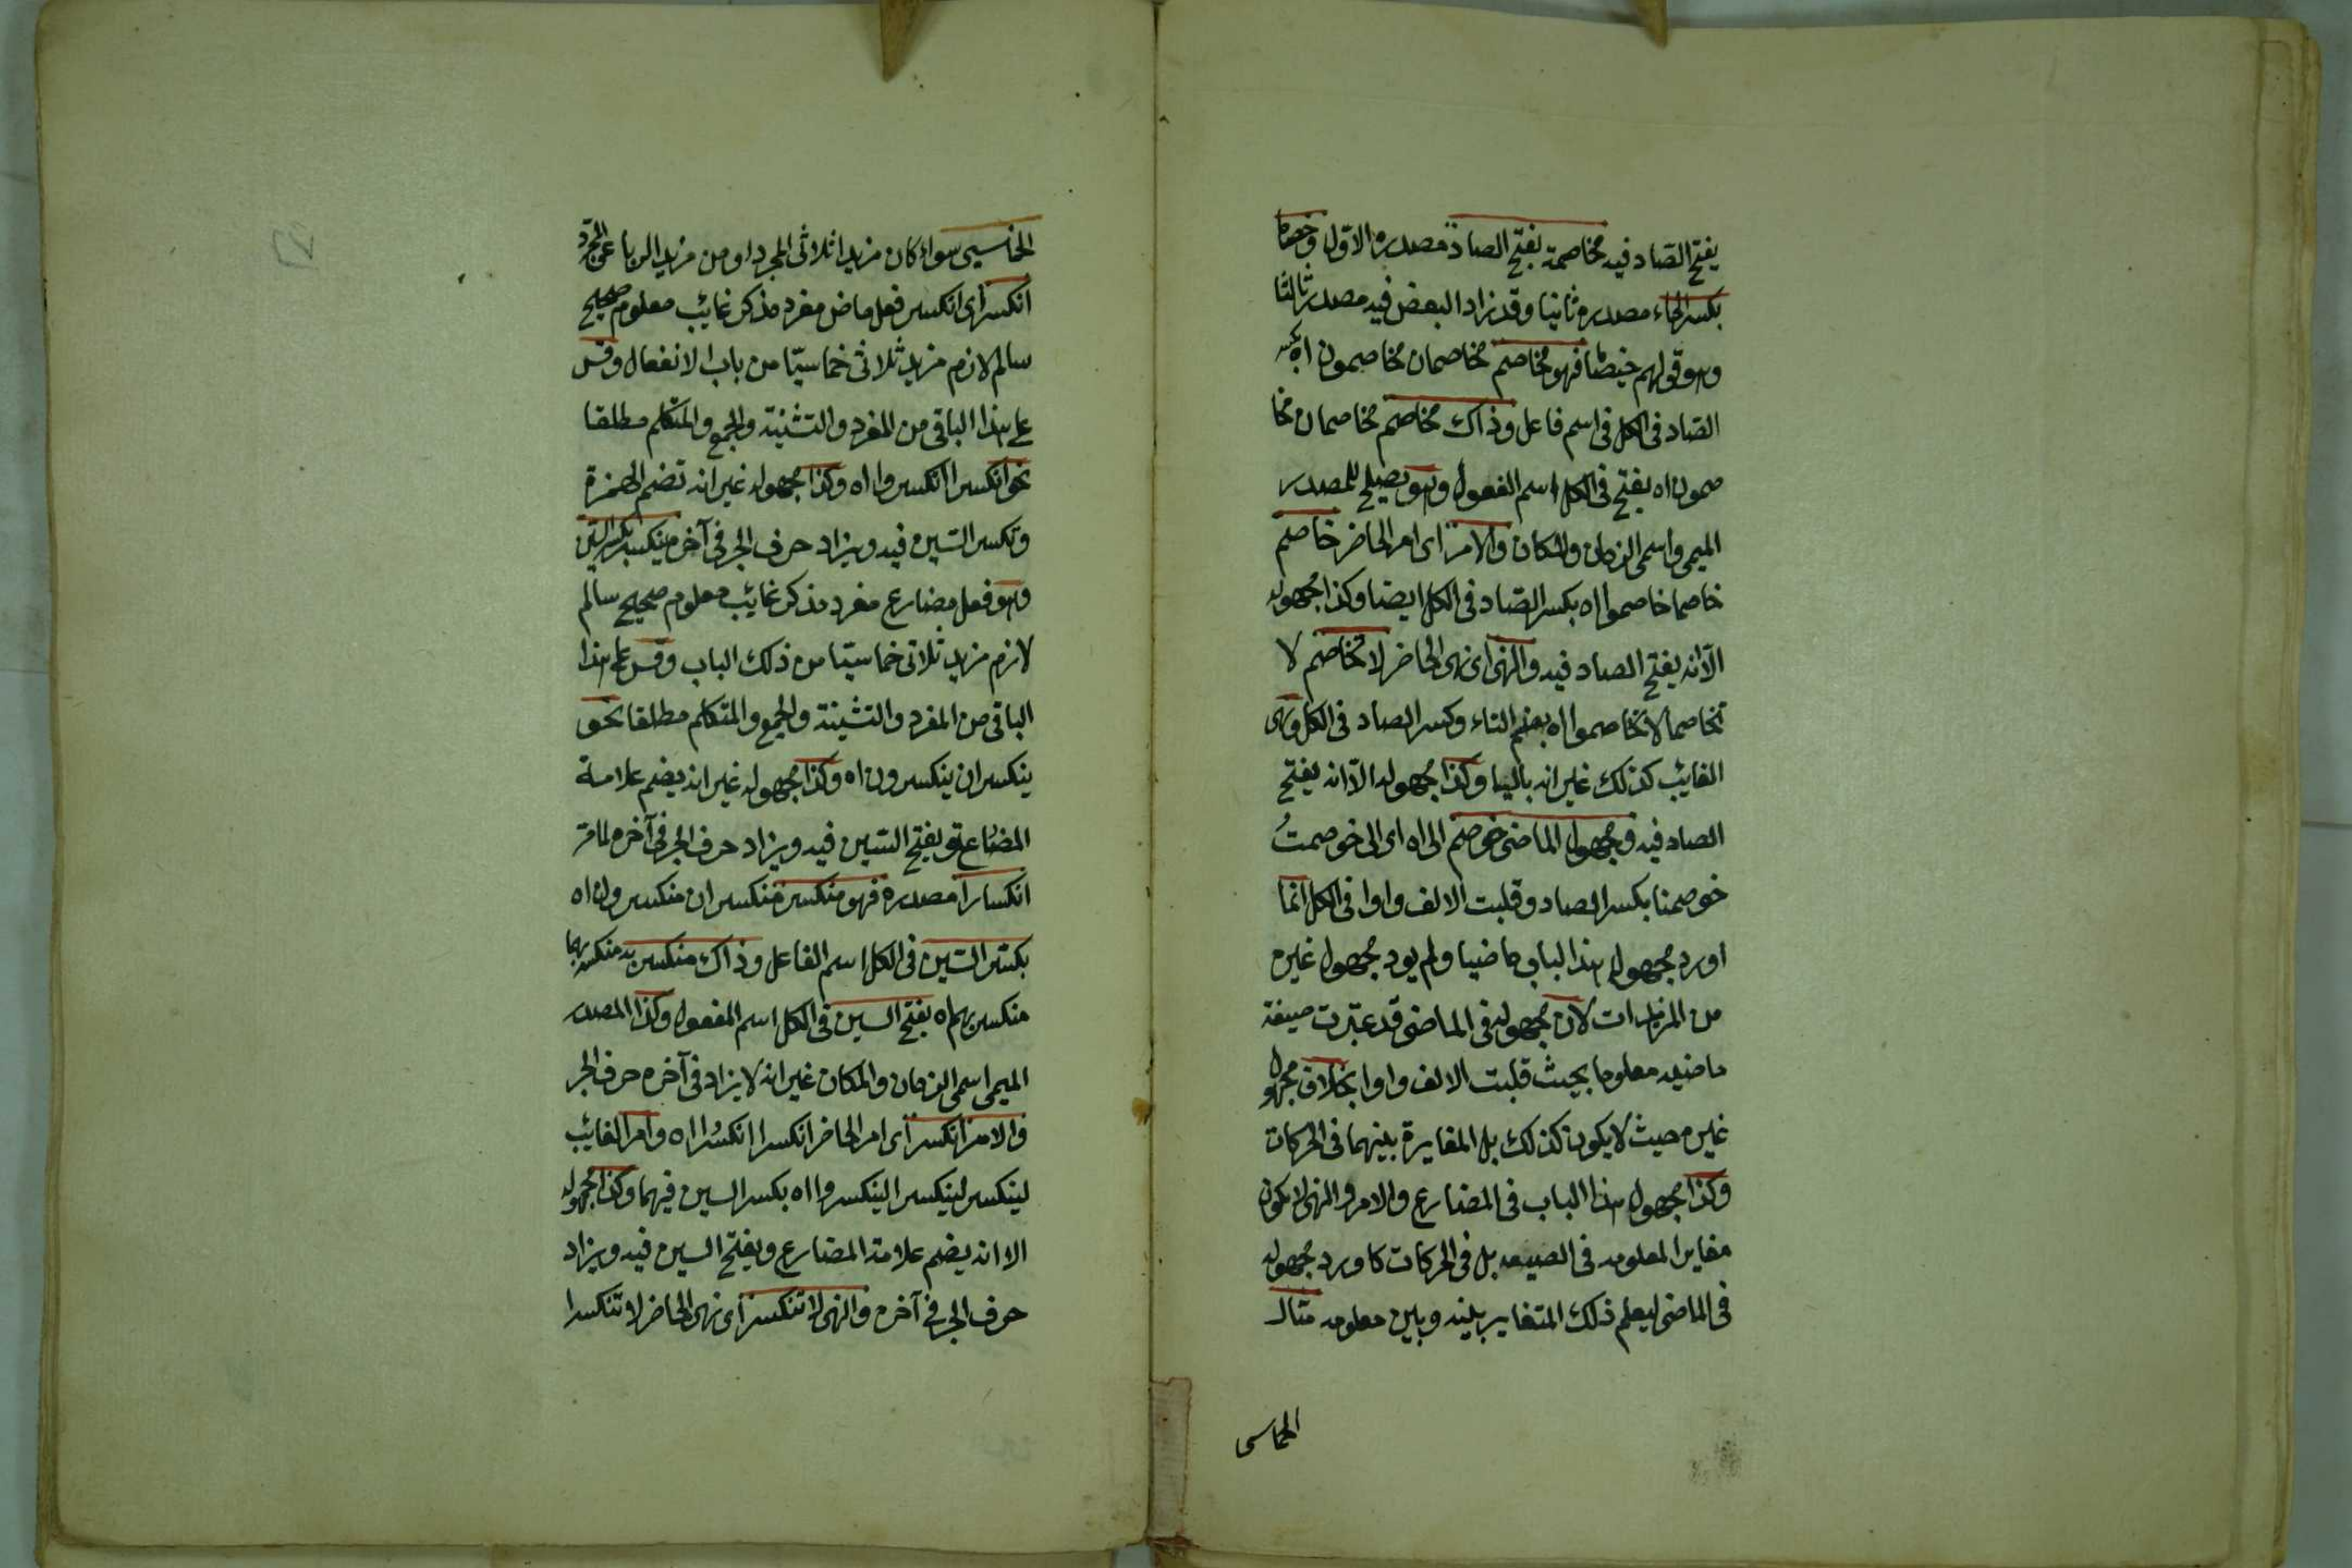 يفتح الصاد فيه مخاصمة بفتح الصاد مصدره الاول وخصاما
بكسر الخاء مصدره ثانيا وقد زاد البعض فيه مصدر ثالثا
وهو قولهم خيصاما فهو مخاصم مخاصمان مخاصمون اه بكسر
الصاد فى الكل فى اسم فاعل وذاك مخاصم مخاصمان مخا
صمون اه يفتح فى الكل اسم المفعول وهو يصلح للمصدر
الميمى واسمى الزمان والمكان والامر اى امر الحاضر خاصم
خاصما خاصموا اه بكسر الصاد فى الكل ايضا وكذا مجهوله
الا انه يفتح الصاد فيه والنهى اى نهى الحاضر لا تخاصم لا
تخاصما لا تخاصموا اه بضم التاء وكسر الصاد فى الكل ونهى
الغايب كذلك غير انه باليا وكذا مجهوله الا انه يفتح
الصاد فيه ومجهول الماضى خوصم الى اه اى الى خوصمتُ
خوصمنا بكسر الصاد وقلبت الالف واوا فى الكل انما
اورد مجهول هذا الباب ماضيا ولم يود مجهول غيره
من المزيدات لان مجهوله فى الماضى قد غيرت صيغة
ماضيه معلوما بحيث قلبت الالف واوا بخلاف مجهول
غيره حيث لا يكون كذلك بل المغايرة بينهما فى الحركات
وكذا مجهول هذا الباب فى المضارع والامر والنهى لا يكون
مغايرا لمعلومه فى الصيغه بل فى الحركات كاورد مجهوله
فى الماضى ليعلم ذلك المتغاير بينه وبين معلومه مثال
الخماسى
الخماسيى سواء كان مزيدا ثلاثى المجرد او من مزيد الرباعى المجرد
انكسر اى انكسر فعل ماض مفرد مذكر غائب معلوم صحيح
سالم لازم مزيد ثلاثى خماسيّا من باب الانفعال وقس
على هذا الباقى من المفرد والتثنية والجمع والمتكلم مطلقا
نحو انكسرا انكسروا اه وكذا مجهوله غير انه تضم الهمزة
وتكسر السين فيه ويزاد حرف الجر فى آخره ينكسر بكسر السين
وهو فعل مضارع مفرد مذكر غائب معلوم صحيح سالم
لازم مزيد ثلاثى خماسيّا من ذلك الباب وقس على هذا
الباقى من المفرد والتثنية والجمع والمتكلم مطلقا نحو
ينكسران ينكسرون اه وكذا مجهوله غير انه يضم علامة
المضارع ويفتح السين فيه ويزاد حرف الجر فى آخره لما مر
انكسارا مصدره فهو منكسر منكسران منكسرون اه
بكسر السين فى الكل اسم الفاعل وذاك منكسر به منكسر بهما
منكسر بهم اه بفتح السين فى الكل اسم المفعول وكذا المصدر
الميمى اسمى الزمان والمكان غير انه لا يزاد فى آخره حرف الجر
والامر انكسر اى امر الحاضر انكسرا انكسرُا اه وامر الغائب
لينكسر لينكسرا لينكسروا اه بكسر السين فيهما وكذا مجهوله
الا انه يضم علامة المضارع ويفتح السين فيه ويزاد
حرف الجر فى آخره والنهى لا تنكسر اى نهى الحاضر لا تنكسرا